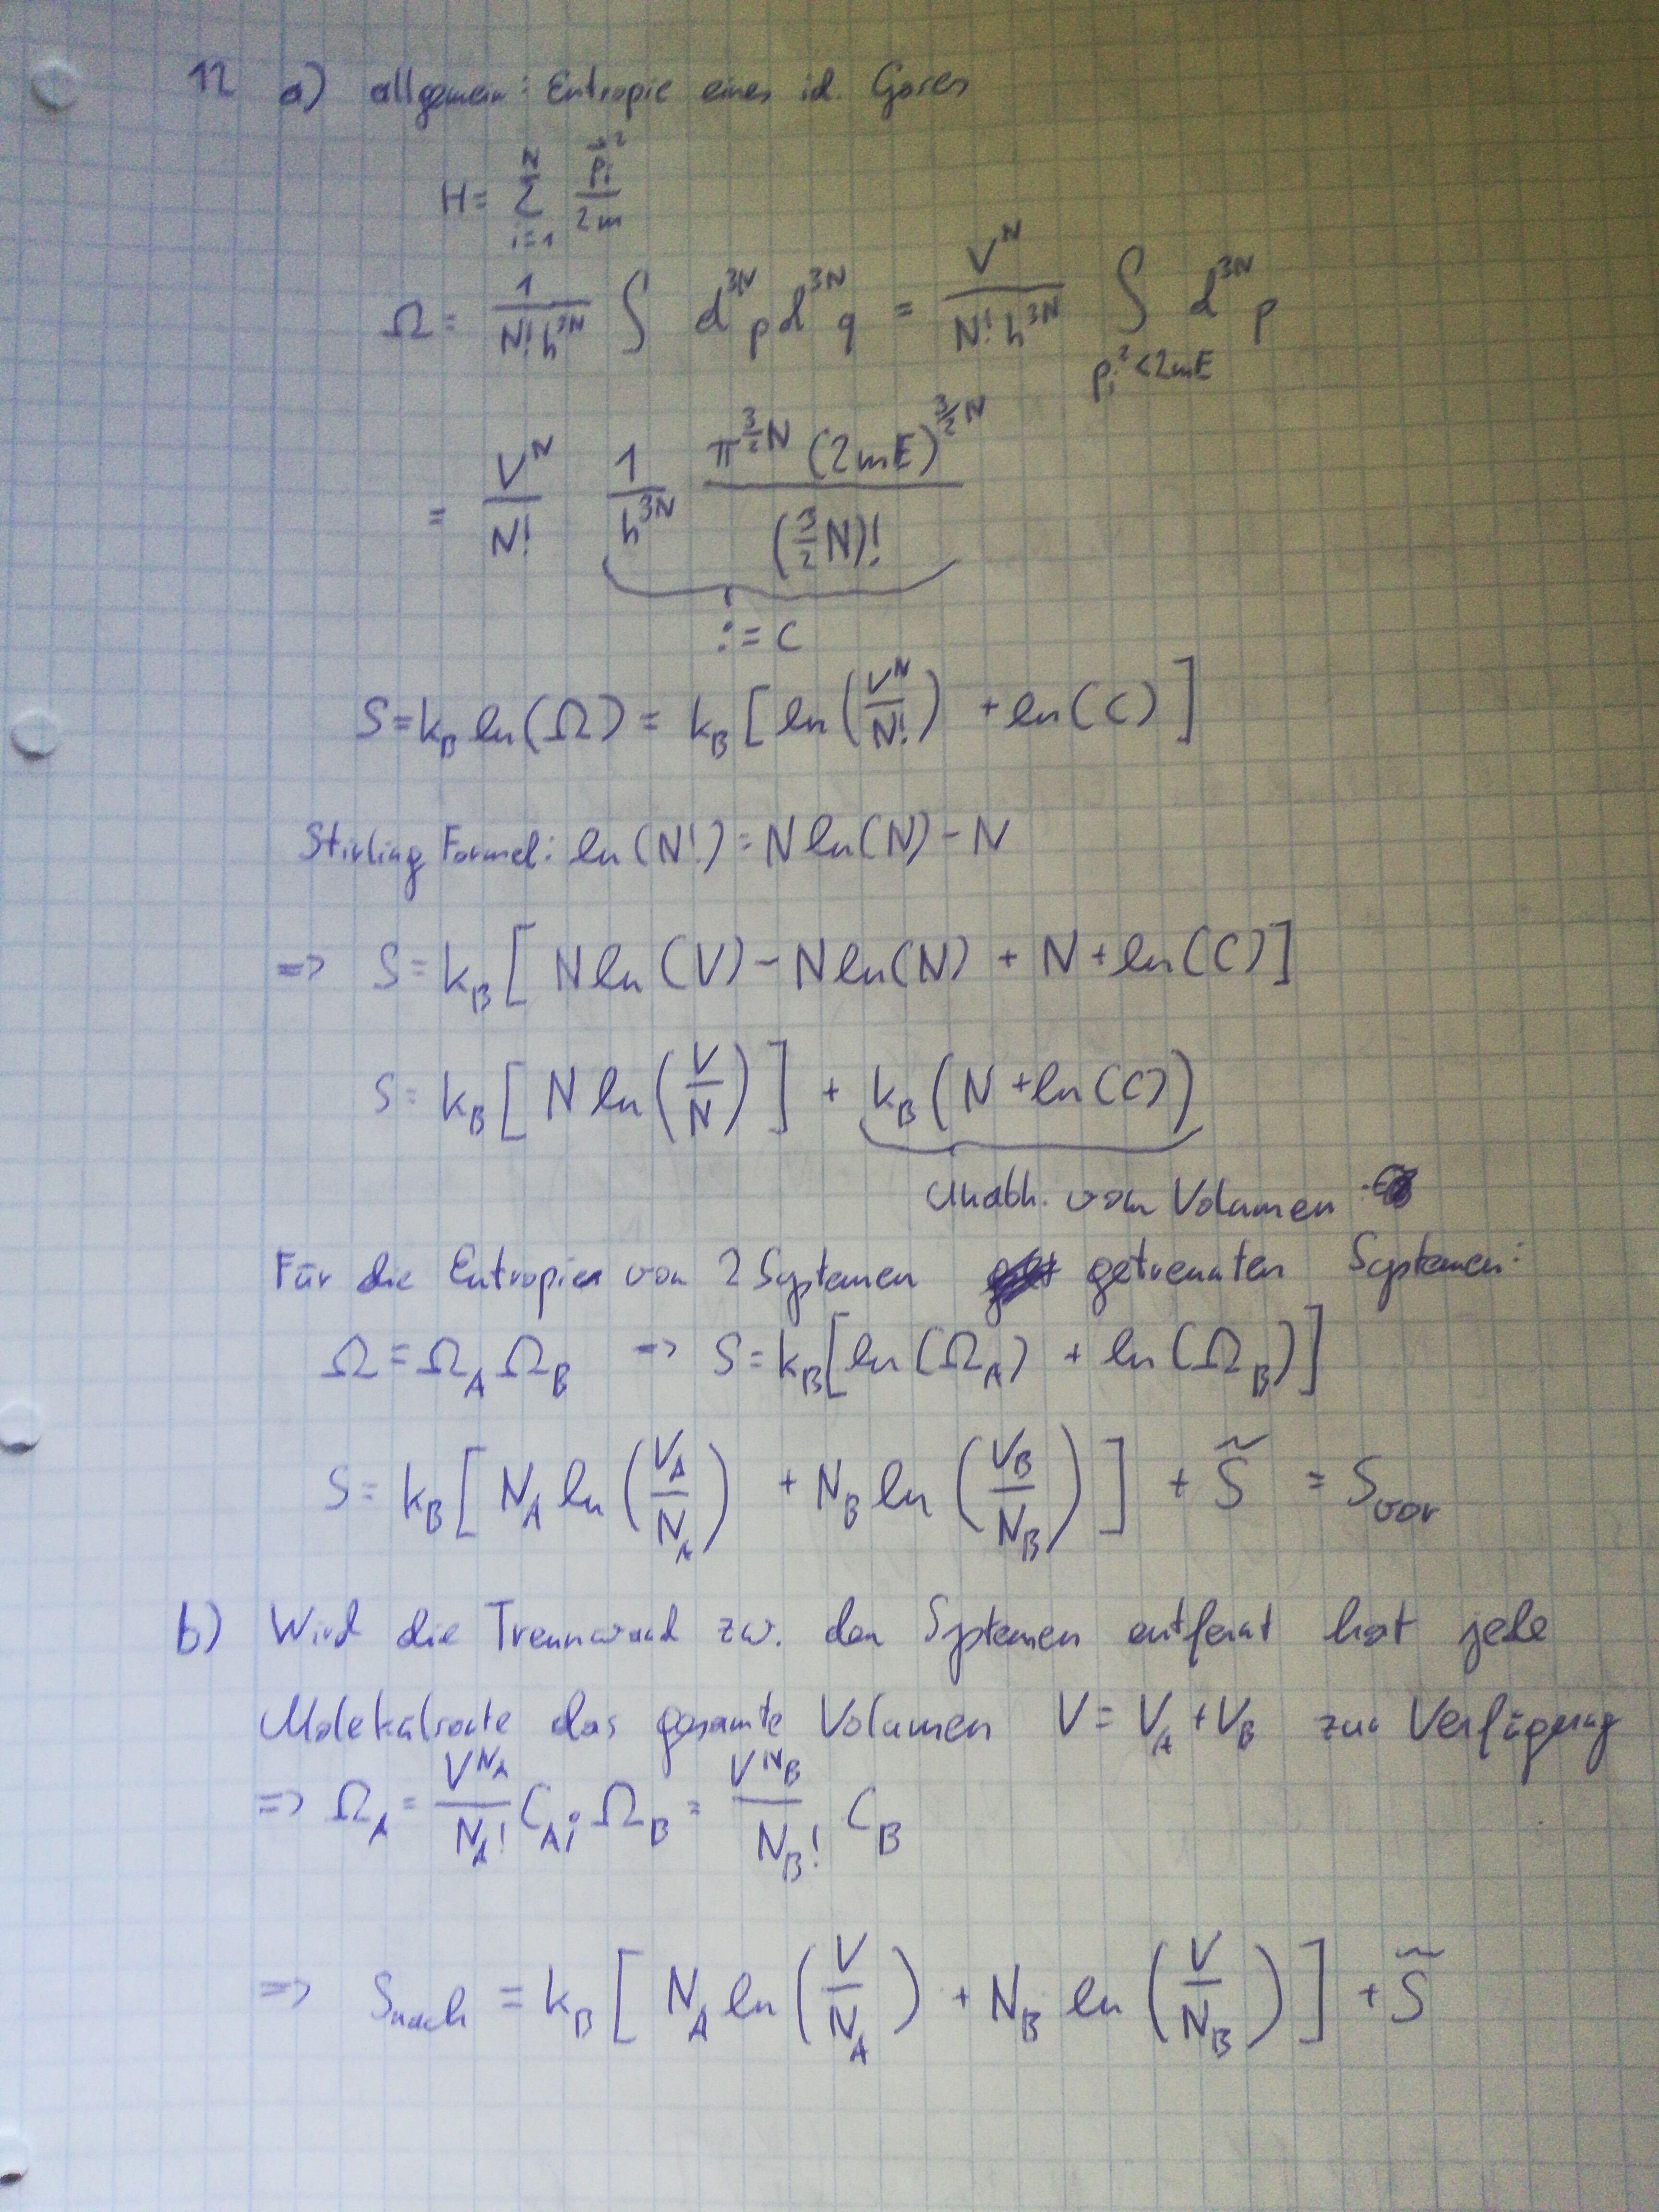 12 a) allgemein: Entropie eines id. Gases
H = Σ_{i=1}^{N} \vec{p_i}²/2m
Ω = 1/(N! h^{3N}) ∫ d^{3N}p d^{3N}q = V^N/(N! h^{3N}) ∫_{p_i² < 2mE} d^{3N}p
= V^N/N! 1/h^{3N} π^{3/2 N} (2mE)^{3/2 N}/(3/2 N)!
:= C
S = k_B ln(Ω) = k_B [ln(V^N/N!) + ln(C)]
Stirling Formel: ln(N!) = N ln(N) - N
=> S = k_B [N ln(V) - N ln(N) + N + ln(C)]
S = k_B [N ln(V/N)] + k_B (N + ln(C))
Unabh. vom Volumen
Für die Entropie von 2 Systemen getrennten Systemen:
Ω = Ω_A Ω_B => S = k_B [ln(Ω_A) + ln(Ω_B)]
S = k_B [N_A ln(V_A/N_A) + N_B ln(V_B/N_B)] + S̃ = S_vor
b) Wird die Trennwand zw. den Systemen entfernt hat jede
Molekülsorte das gesamte Volumen V = V_A + V_B zur Verfügung
=> Ω_A = V^{N_A}/N_A! C_A; Ω_B = V^{N_B}/N_B! C_B
=> S_nach = k_B [N_A ln(V/N_A) + N_B ln(V/N_B)] + S̃